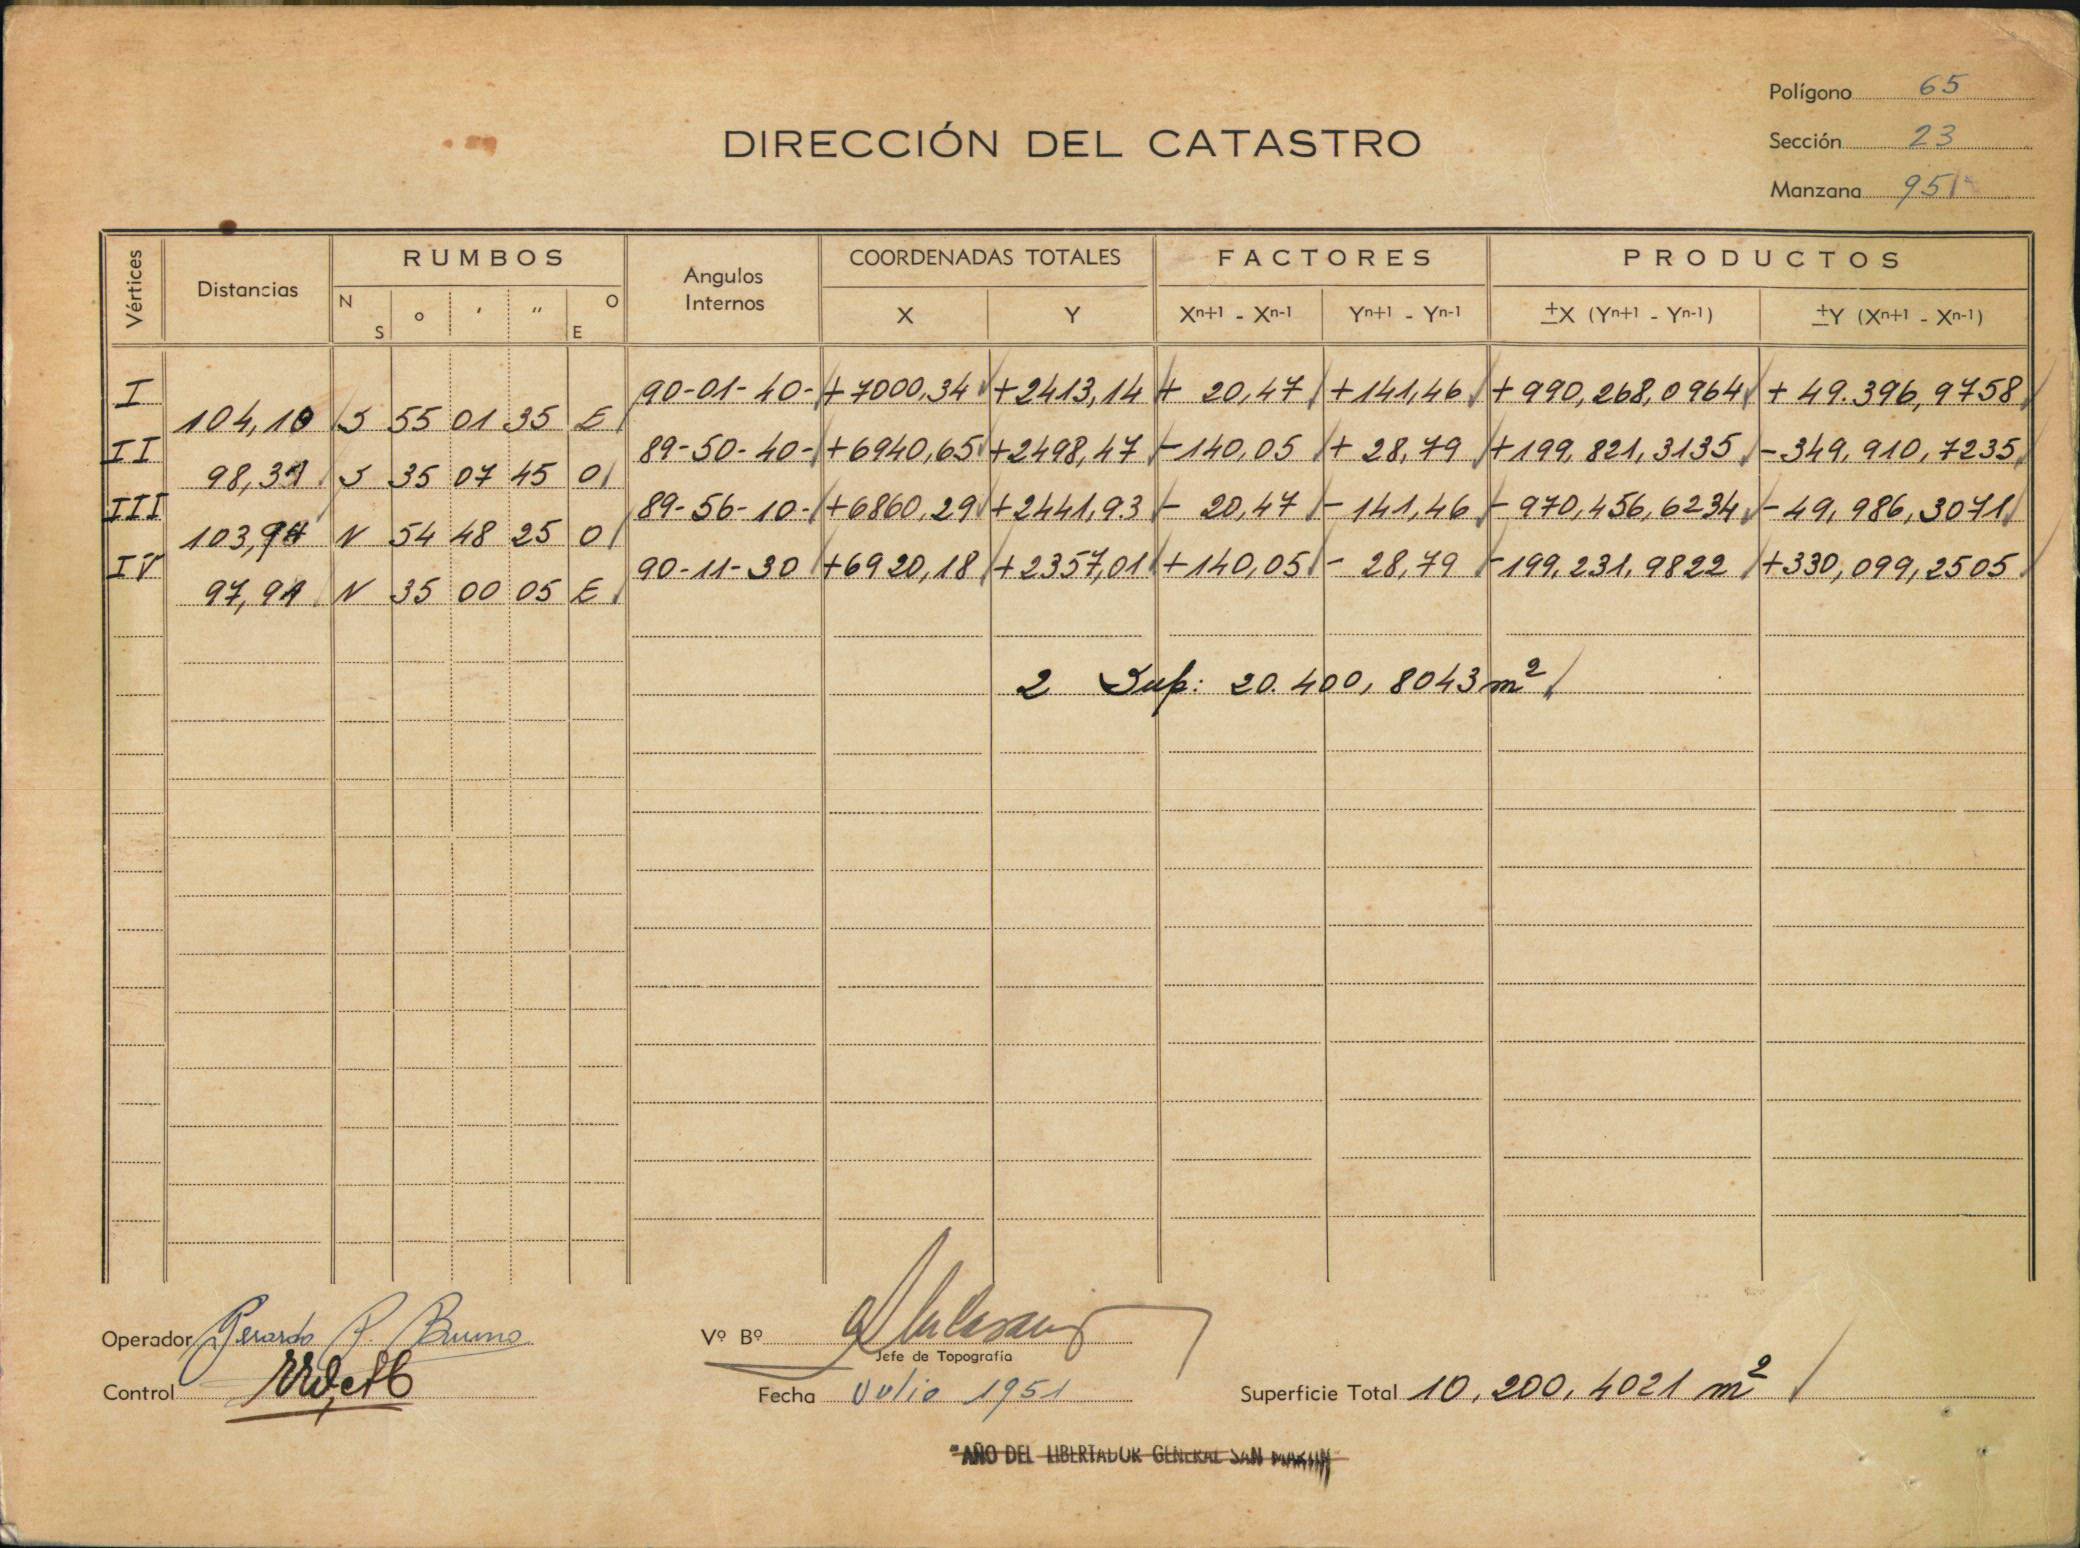 Polígono 65
DIRECCIÓN DEL CATASTRO
Sección 23
Manzana 95
Vértices Distancias RUMBOS Angulos Internos COORDENADAS TOTALES FACTORES PRODUCTOS
N S ° ' " O E X Y Xn+1 - Xn-1 Yn+1 - Yn-1 ±X (Yn+1 - Yn-1) ±Y (Xn+1 - Xn-1)
I 90-01-40- +7000,34 +2413,14 + 20,47 +141,46 +990,268,0964 + 49.396,9758
104,10 S 55 01 35 E
II 89-50-40- +6940,65 +2498,47 -140,05 + 28,79 +199,821,3135 -349,910,7235
98,31 S 35 07 45 O
III 89-56-10- +6860,29 +2441,93 - 20,47 - 141,46 - 970,456,6234 -49,986,3071
N 54 48 25 O
IV 90-11-30 +6920,18 +2357,01 +140,05 - 28,79 -199,231,9822 +330,099,2505
97,91 N 35 00 05 E
2 Sup: 20.400,8043 m²
Operador Gerardo P. Bruno
Vº Bº
Jefe de Topografía
Control
Fecha Julio 1951
Superficie Total 10,200,4021 m²
"AÑO DEL LIBERTADOR GENERAL SAN MARTIN